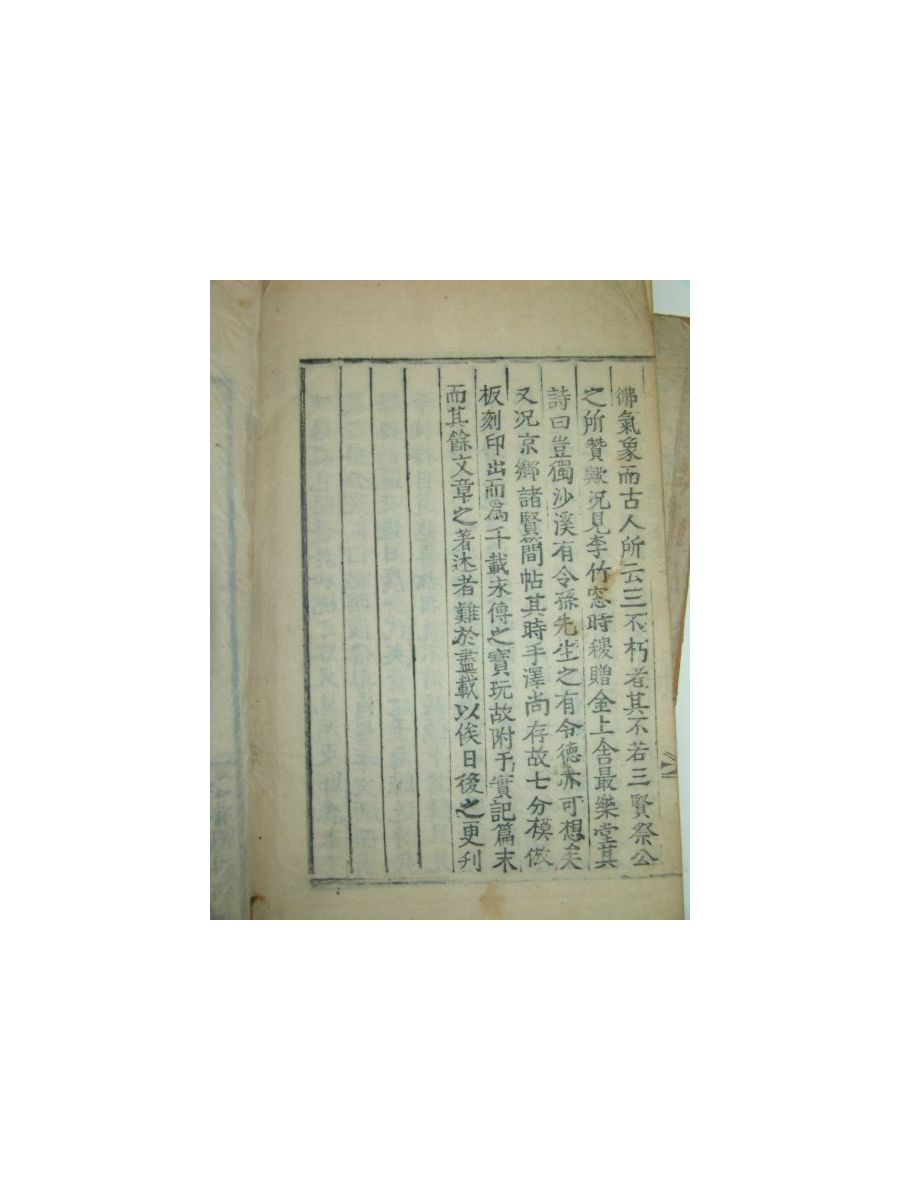 彿氣象而古人所云三不朽者其不若三賢祭公
之所贊歟況見李竹窓時稷贈金上舍最樂堂其
詩曰豈獨沙溪有令孫先生之有令德亦可想矣
又况京鄉諸賢簡帖其時手澤尚存故七分模倣
板刻印出而爲千載永傳之寶玩故附于實記篇末
而其餘文章之著述者難於盡載以俟日後之更刋